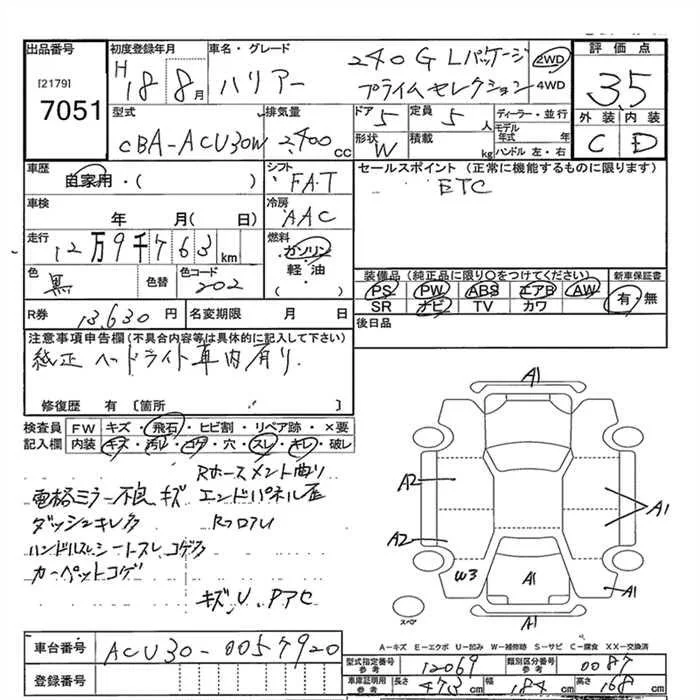 出品番号
[2179]
7051
初度登録年月
H 18 8月
車名・グレード
ハリアー
240G Lパッケージ
プライムセレクション
2WD
4WD
評価点
3.5
外装 内装
C D
型式
CBA-ACU30W
排気量
2,400cc
ドア 5
定員 5人
形状 W
積載 kg
ディーラー・並行
モデル年式 年
ハンドル 左・右
車歴
自家用・( )
シフト
FAT
セールスポイント (正常に機能するものに限ります)
ETC
車検
年 月( 日)
冷房
AAC
走行
12万9千763km
燃料
ガソリン
軽・油
( )
色
黒
色替
色コード
202
装備品(純正品に限り○をつけてください)
PS PW ABS エアB AW
SR ナビ TV カワ
新車保証書
有・無
R券 13,630円
名変期限 月 日
後日品
注意事項申告欄(不具合内容等は具体的に記入して下さい)
純正ヘッドライト車内有り.
修復歴 有〔箇所 〕
検査員記入欄
FW キズ・飛石・ヒビ割・リペア跡・×要
内装 キズ・汚レ・コゲ・穴・スレ・キレ・破レ
Rホースメント曲り
電格ミラー不良 キズ エンドパネル歪
ダッシュキレ多 RフロアU
ハンドルスレ シートスレ コゲ多
カーペットコゲ
キズ、U、Pアセ
A1
A2
A1
A2
W3
A1
A1
A1
スペア
A-キズ E-エクボ U-凹み W-補修跡 S-サビ C-腐食 XX-交換済
車台番号
ACU30-0057920
登録番号
型式指定番号 参考 12069
類別区分番号 参考 0087
車庫証明用 参考 長さ 473cm 幅 184cm 高さ 168cm